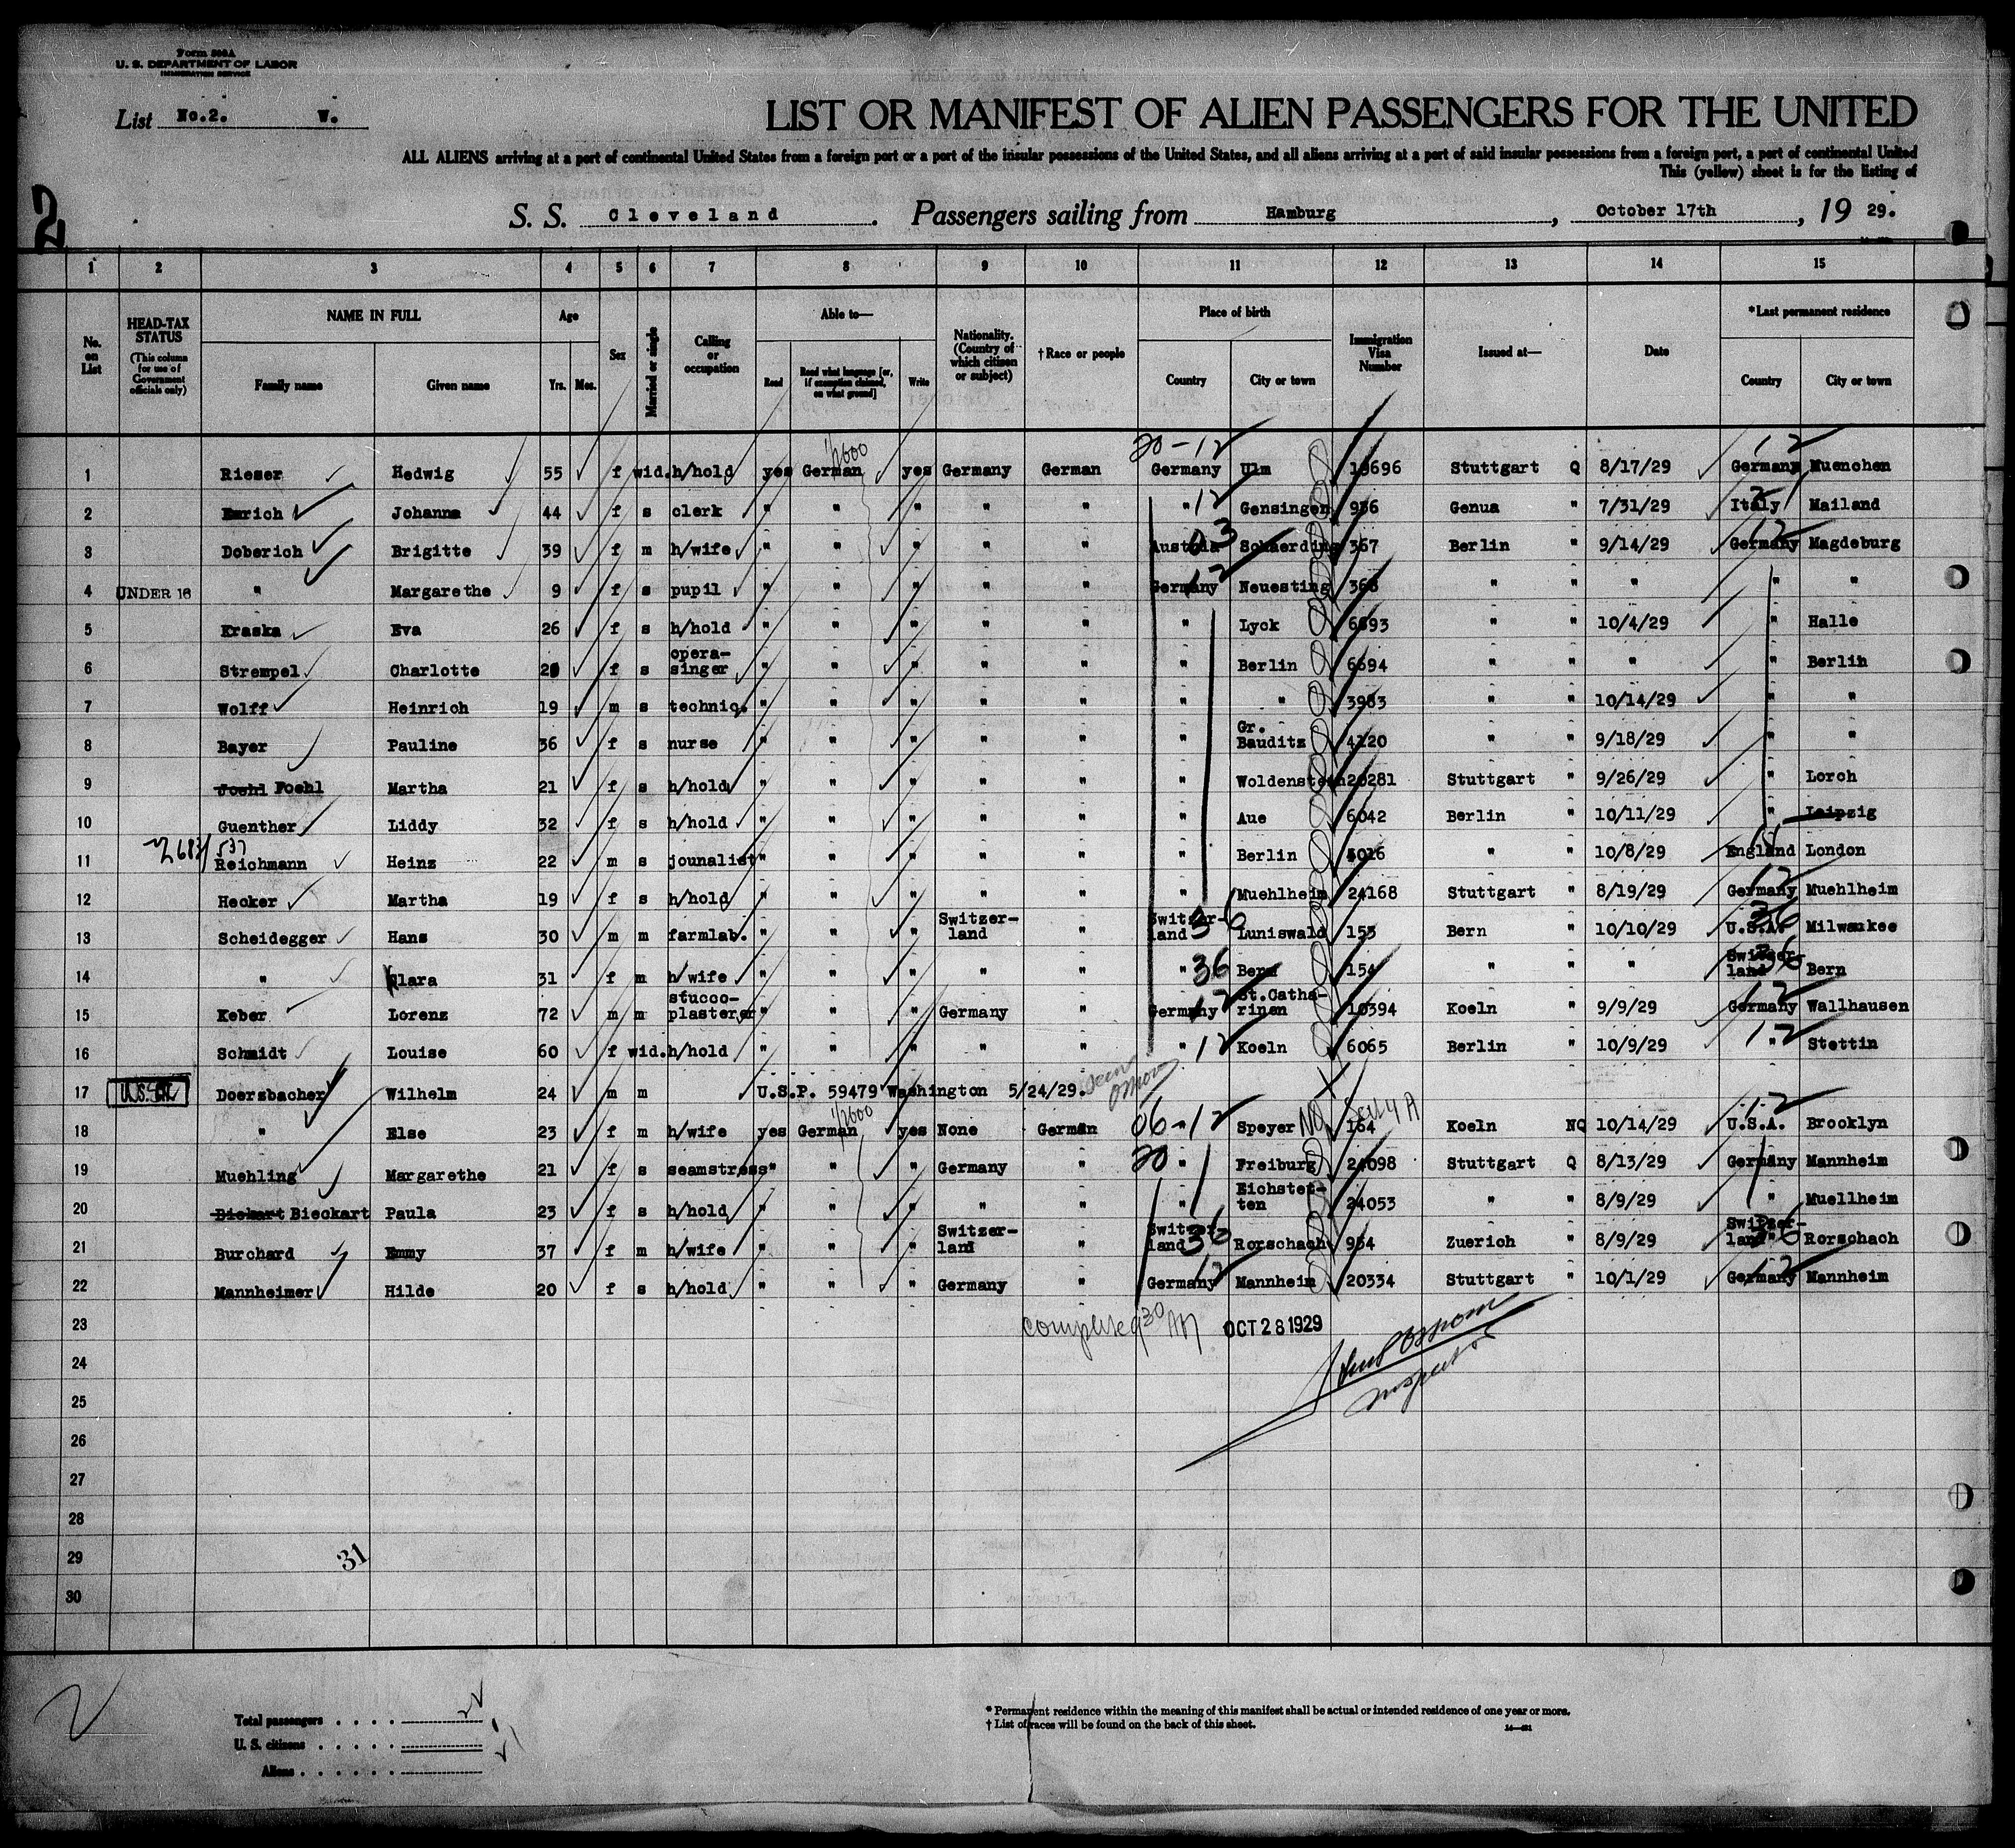 Form 500A
U. S. DEPARTMENT OF LABOR
IMMIGRATION SERVICE
List No.2. W.
LIST OR MANIFEST OF ALIEN PASSENGERS FOR THE UNITED
ALL ALIENS arriving at a port of continental United States from a foreign port or a port of the insular possessions of the United States, and all aliens arriving at a port of said insular possessions from a foreign port, a port of continental United
This (yellow) sheet is for the listing of
2
S. S. Cleveland. Passengers sailing from Hamburg, October 17th, 1929.
1 2 3 4 5 6 7 8 9 10 11 12 13 14 15
No. on List
HEAD-TAX STATUS (This column for use of Government officials only)
NAME IN FULL
Family name Given name
Age
Yrs. Mos.
Sex
Married or single
Calling or occupation
Able to—
Read Read what language [or, if exemption claimed, on what ground] Write
Nationality. (Country of which citizen or subject)
†Race or people
Place of birth
Country City or town
Immigration Visa Number
Issued at—
Date
*Last permanent residence
Country City or town
20-12 12
1 Rieser Hedwig 55 f wid. h/hold yes German yes Germany German Germany Ulm 18696 Stuttgart Q 8/17/29 Germany Muenchen
2 Johanna 44 f s clerk " " " " " " 12 Gensingen 936 Genua " 7/31/29 Italy Mailand
3 Doberich Brigitte 39 f m h/wife " " " " " Austria 03 Schaerding 367 Berlin " 9/14/29 Germany 12 Magdeburg
4 UNDER 16 " Margarethe 9 f s pupil " " " " " Germany 12 Neuesting 368 " " " " "
5 Kraska Eva 26 f s h/hold " " " " " " Lyck 6693 " " 10/4/29 " Halle
6 Strempel Charlotte f s opera-singer " " " " " " Berlin 6694 " " " " Berlin
7 Wolff Heinrich 19 m s techniq. " " " " " " " 3983 " " 10/14/29 " "
8 Bayer Pauline 36 f s nurse " " " " " " Gr. Bauditz 4120 " " 9/18/29 " "
9 Joehl Foehl Martha 21 f s h/hold " " " " " " Woldenstein 20281 Stuttgart " 9/26/29 " Lorch
10 Guenther Liddy 32 f s h/hold " " " " " " Aue 6042 Berlin " 10/11/29 " Leipzig
11 Reichmann Heinz 22 m s jounalist " " " " " " Berlin 4016 " " 10/8/29 England London
12 Hecker Martha 19 f s h/hold " " " " " " Muehlheim 24168 Stuttgart " 8/19/29 Germany 12 Muehlheim
13 Scheidegger Hans 30 m m farmlab. " " " Switzerland " Switzerland 36 Luniswald 153 Bern " 10/10/29 U.S.A. 36 Milwaukee
14 " Clara 31 f m h/wife " " " " " " 36 Bern 154 " " " Switzerland 36 Bern
15 Keber Lorenz 72 m m stucco-plasterer " " " Germany " Germany 12 St.Catharinen 10394 Koeln " 9/9/29 Germany 12 Wallhausen
16 Schmidt Louise 60 f wid. h/hold " " " " " " 12 Koeln 6065 Berlin " 10/9/29 " 12 Stettin
17 Doersbacher Wilhelm 24 m m U.S.P. 59479 Washington 5/24/29.
18 " Else 23 f m h/wife yes German yes None German 06-12 Speyer NO 164 Koeln NQ 10/14/29 U.S.A. 12 Brooklyn
19 Muehling Margarethe 21 f s seamstress " " " Germany " 20 " Freiburg 24098 Stuttgart Q 8/13/29 Germany Mannheim
20 Bickart Bieckart Paula 23 f s h/hold " " " " " " Eichstetten 24053 " " 8/9/29 " Muellheim
21 Burchard Emmy 37 f m h/wife " " " Switzerland " Switzerland 36 Rorschach 954 Zuerich " 8/9/29 Switzerland 36 Rorschach
22 Mannheimer Hilde 20 f s h/hold " " " Germany " Germany 12 Mannheim 20334 Stuttgart " 10/1/29 Germany 12 Mannheim
23 completed OCT 28 1929
24
25 Inspector
26
27
28
29 31
30
Total passengers
U. S. citizens
Aliens
* Permanent residence within the meaning of this manifest shall be actual or intended residence of one year or more.
† List of races will be found on the back of this sheet.